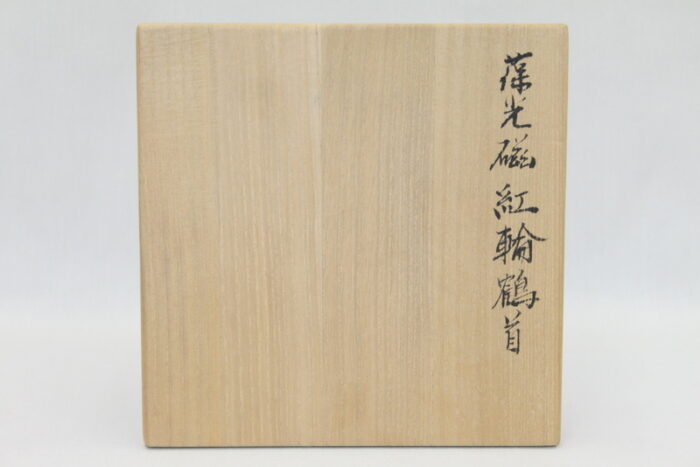 葆光磁紅輪鶴首